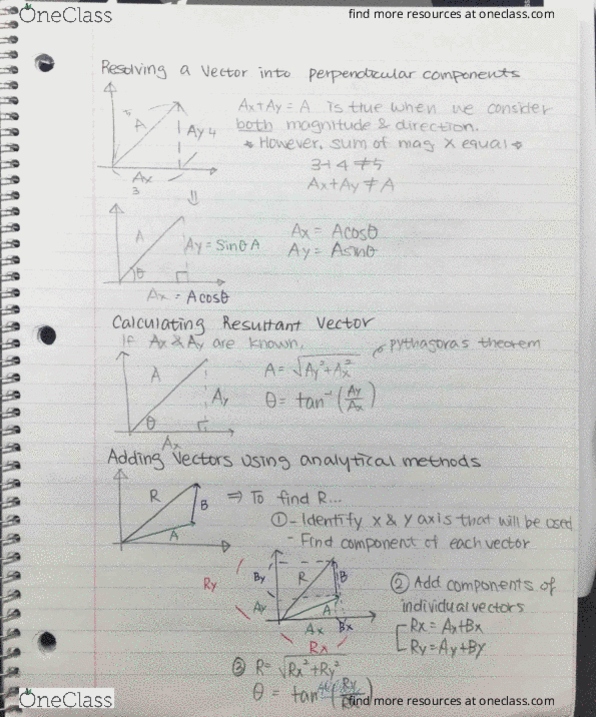 OneClass
find more resources at oneclass.com
Resolving a vector into perpendicular components
Ax+Ay = A is true when we consider
both magnitude & direction.
* However, sum of mag X equal *
3+4≠5
Ax+Ay≠A
A
Ay 4
Ax
3
⇓
A
Ay = Sinθ A
θ
Ax = Acosθ
Ax = Acosθ
Ay = Asinθ
Calculating Resultant Vector
If Ax & Ay are known,
pythagoras theorem
A = √Ay²+Ax²
θ = tan⁻¹ (Ay/Ax)
A
Ay
θ
Ax
Adding Vectors using analytical methods
R
B
A
⇒ To find R...
① - Identify x & y axis that will be used
- Find component of each vector
Ry
By
Ay
R
B
A
Ax
Bx
Rx
② Add components of
individual vectors
Rx = Ax+Bx
Ry = Ay+By
③ R = √Rx²+Ry²
θ = tan
OneClass
find more resources at oneclass.com